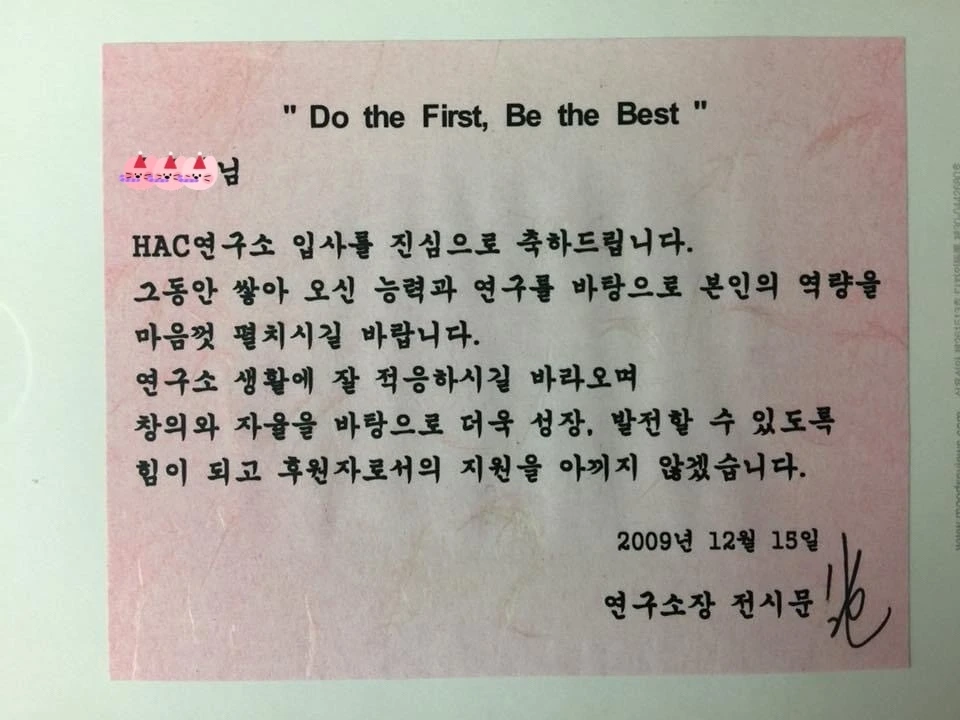 " Do the First, Be the Best "
님
HAC연구소 입사를 진심으로 축하드립니다.
그동안 쌓아 오신 능력과 연구를 바탕으로 본인의 역량을
마음껏 펼치시길 바랍니다.
연구소 생활에 잘 적응하시길 바라오며
창의와 자율을 바탕으로 더욱 성장, 발전할 수 있도록
힘이 되고 후원자로서의 지원을 아끼지 않겠습니다.
2009년 12월 15일
연구소장 전시문